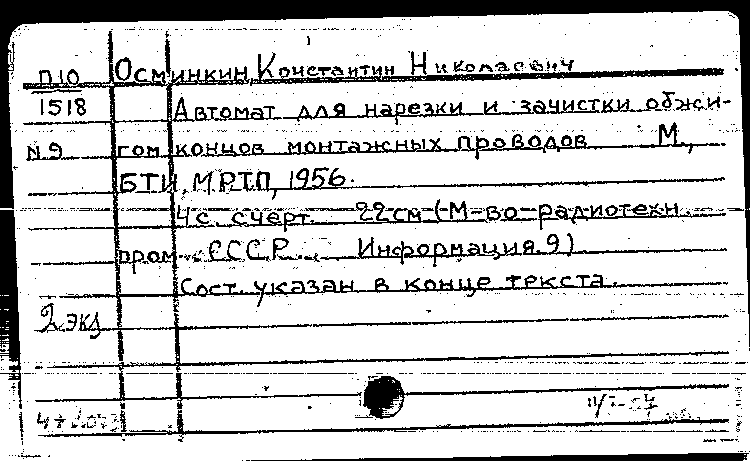 П10 Осминкин, Константин Николаевич
1518 Автомат для нарезки и зачистки обжи-
N 9 гом концов монтажных проводов М.,
БТИ, МРТП, 1956.
4 с. с черт. 22 см (М-во радиотехн.
пром. СССР. Информация 9)
Сост. указан в конце текста.
2 экз